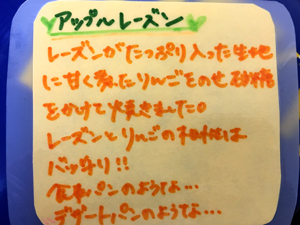 アップルレーズン
レーズンがたっぷり入った生地
に甘く煮たりんごをのせ砂糖
をかけて焼きました。
レーズンとりんごの相性は
バッチリ!!
食事パンのような…
デザートパンのような…